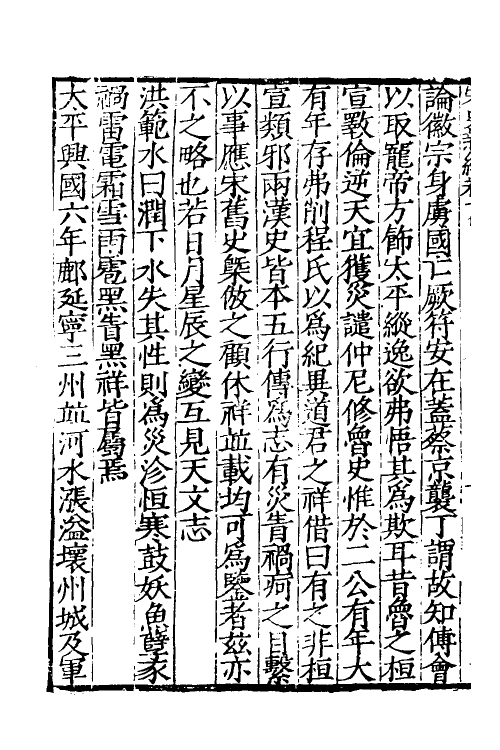 論徽宗身虜國亡厥符安在蓋蔡京襲丁謂故知傅會
以取寵帝方飾太平縱逸欲弗悟其爲欺耳昔魯之桓
宣斁倫逆天宜獲災譴仲尼修魯史惟於二公有年大
有年存弗削程氏以爲紀異道君之祥借曰有之非桓
宣類邪兩漢史皆本五行傳爲志有災眚禍痾之目繫
以事應宋舊史槩倣之顧休祥並載均可爲鑒者茲亦
不之略也若日月星辰之變互見天文志
洪範水曰潤下水失其性則爲災沴恒寒鼓妖魚孽豕
禍雷電霜雪雨雹黑眚黑祥皆屬焉
太平興國六年鄜延寧三州並河水漲溢壞州城及軍